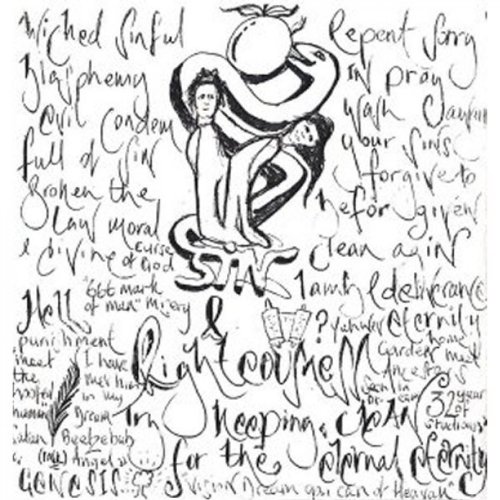 Wicked Sinful
Blasphemy
Evil Condem
full of Sin
Broken the
Law moral
& divine
curse
of God
"666 mark
of man" misery
Hell
punishment
meet
the
hoofed
human
I have
met him
in my
Dream
Satan Beelzebub
Angel
GENESIS
Repent Sorry
in pray
wash
your sins
forgive to
be forgiven
clean agin
& deliverance
? Yahweh eternity
home
Garden meet
Ancestors
32 year
of
studious
SIN
&
Righteousness
Try keeping clean
for the eternal eternity
vision Dream you can of Heavan"